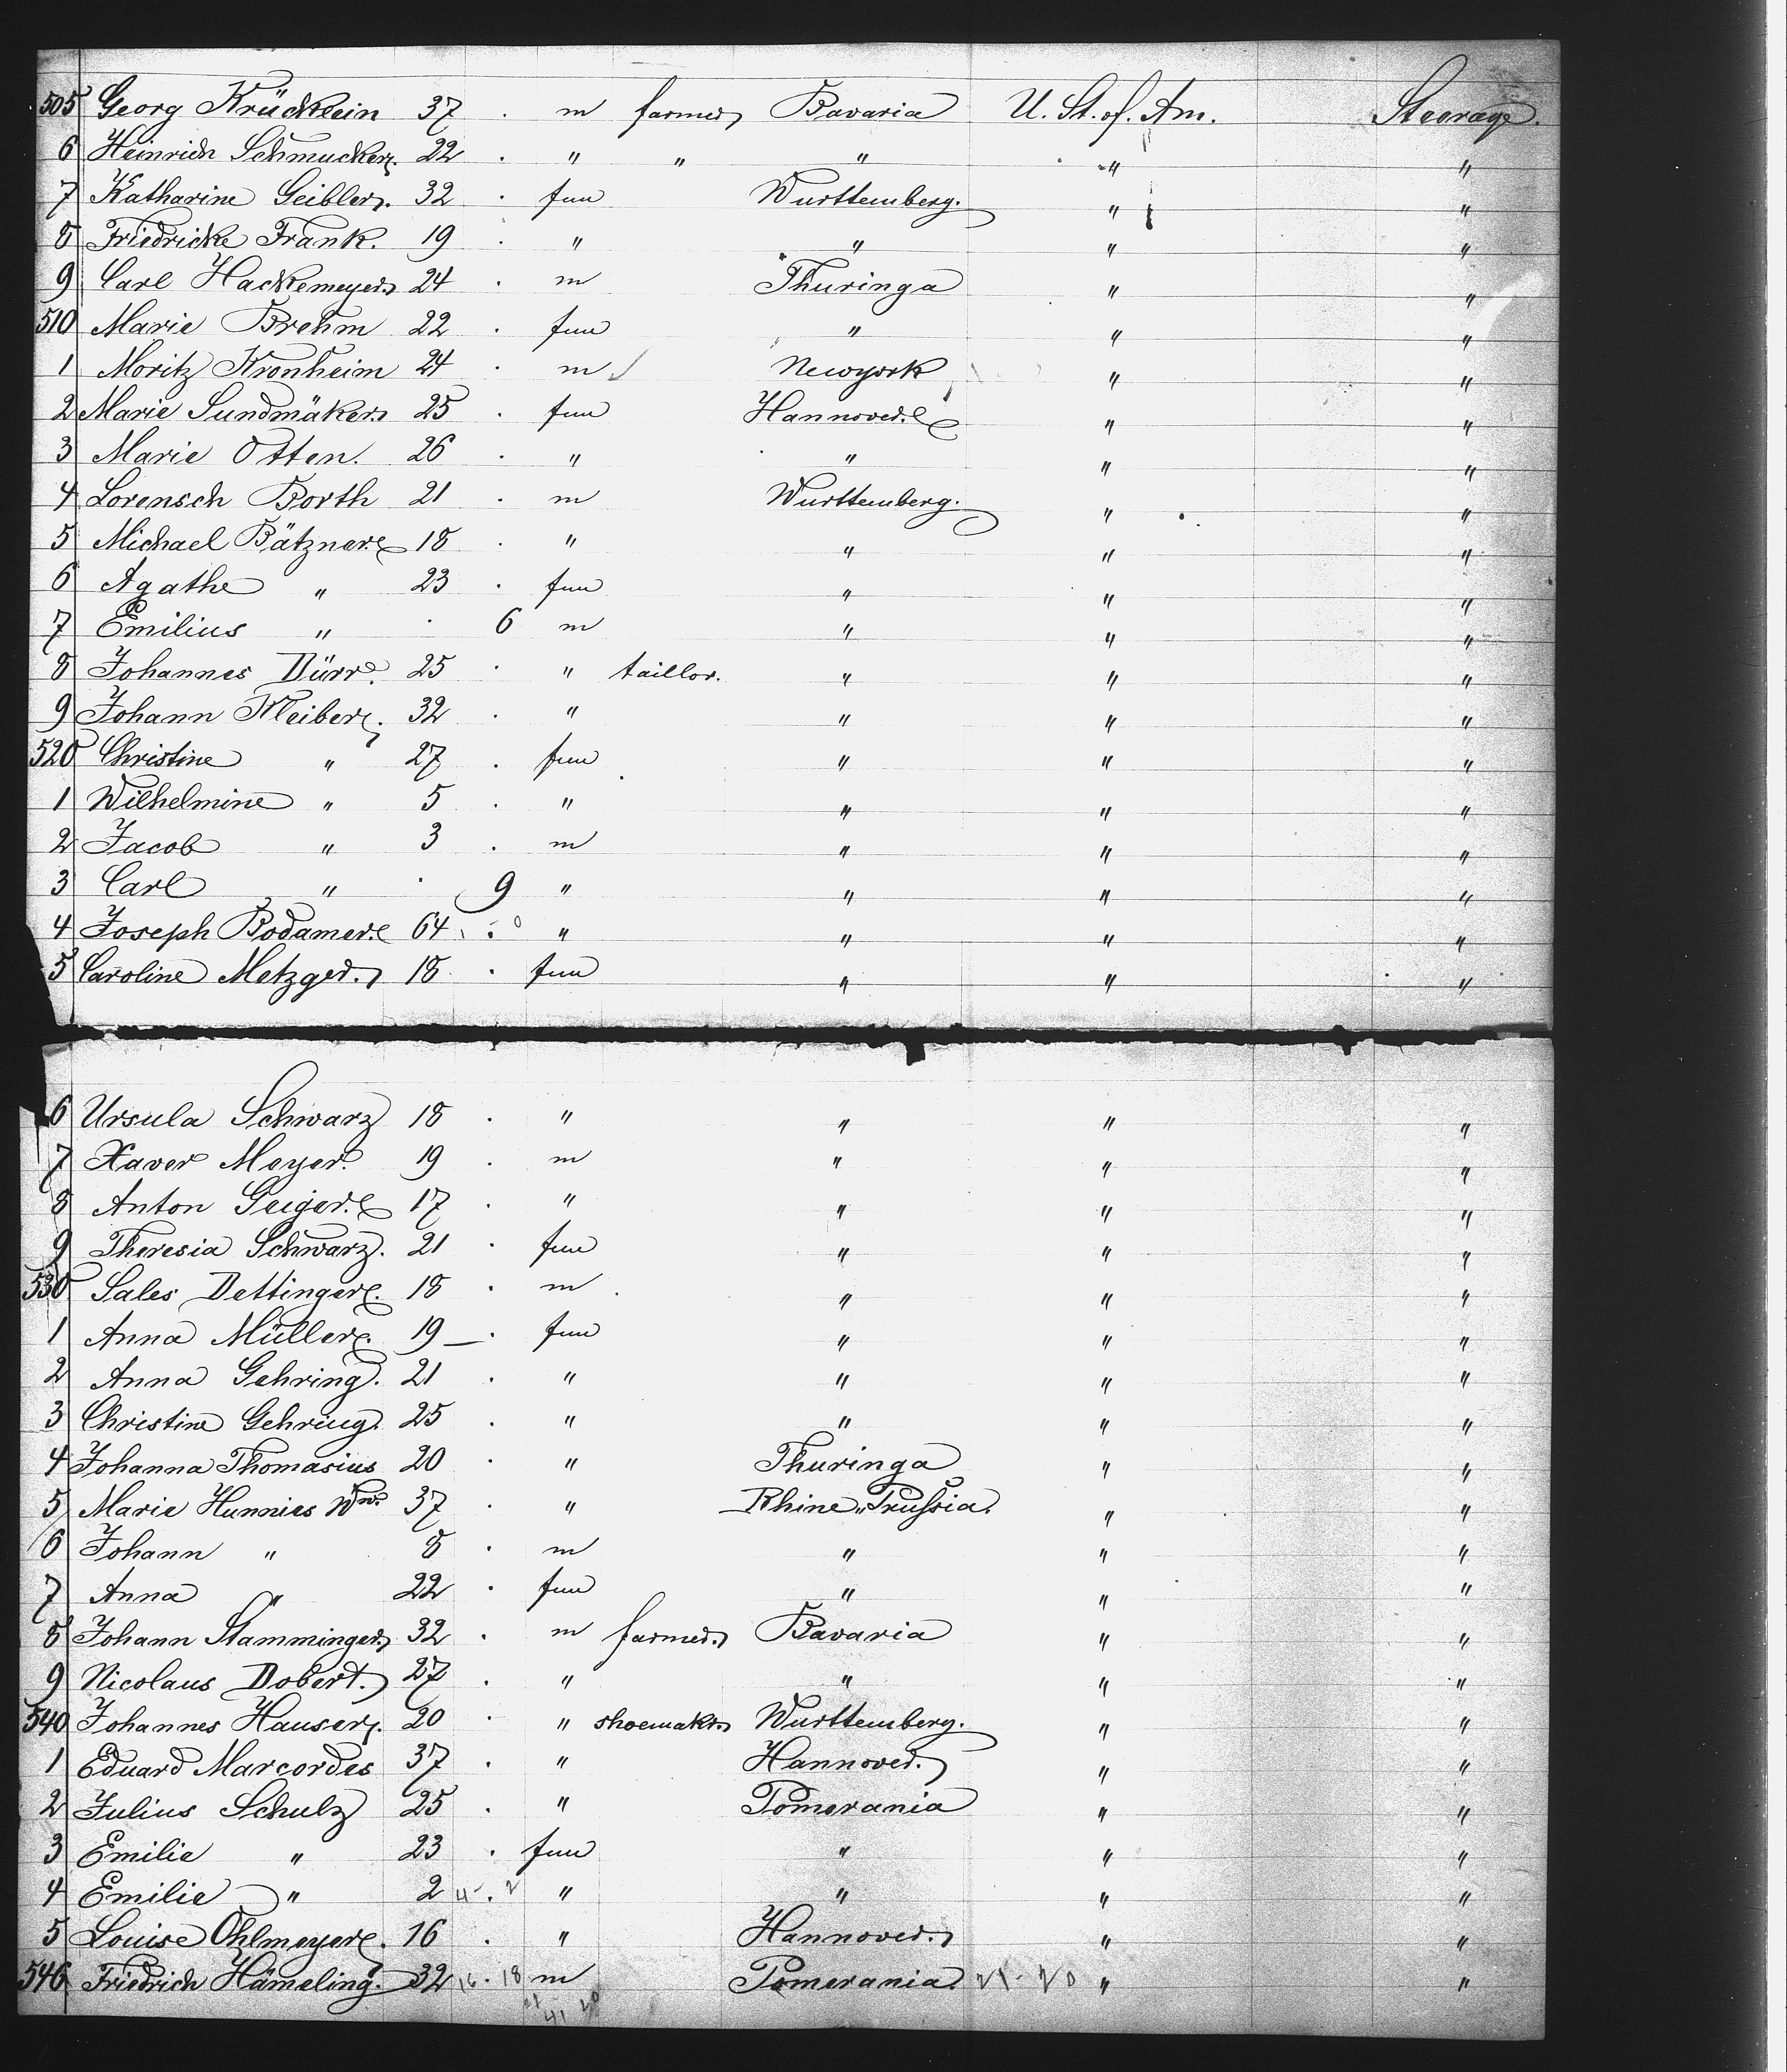 505 Georg Krücklein 37 . m farmer Bavaria U. St. of. Am. Steerage.
6 Heinrich Schmucker. 22 . " " " " "
7 Katharine Geibler. 32 . fem Wurttemberg. " "
8 Friedricke Frank. 19 . " " " "
9 Carl Hackemeyer 24 . m Thuringa " "
510 Marie Brehm 22 . fem " " "
1 Moritz Kronheim 24 . m Newyork " "
2 Marie Sundmäker 25 . fem Hannover. " "
3 Marie Otten. 26 . " " " "
4 Lorensch Borth 21 . m Wurttemberg. " "
5 Michael Bätzner. 18 . " " " "
6 Agathe " 23 . fem " " "
7 Emilius " . 6 m " " "
8 Johannes Dürr. 25 . " taillor. " " "
9 Johann Kleiber. 32 . " " " "
520 Christine " 27 . fem " " "
1 Wilhelmine " 5 . " " " "
2 Jacob " 3 . m " " "
3 Carl " . 9 " " " "
4 Joseph Bodamer. 64 . " " " "
5 Caroline Metzger. 18 . fem " " "
6 Ursula Schwarz 18 . " " " "
7 Xaver Meyer. 19 . m " " "
8 Anton Geiger. 17 . " " " "
9 Theresia Schwarz. 21 . fem " " "
530 Sales Dettinger. 18 . m " " "
1 Anna Müller. 19 . fem " " "
2 Anna Gehring. 21 . " " " "
3 Christine Gehring. 25 . " " " "
4 Johanna Thomasius 20 . " Thuringa " "
5 Marie Hunnies Ww. 37 . " Rhine "Prussia. " "
6 Johann " 8 . m " " "
7 Anna " 22 . fem " " "
8 Johann Stamminger 32 . m farmer. Bavaria " "
9 Nicolaus Dobert. 27 . " " " "
540 Johannes Hauser. 20 . " shoemakr. Wurttemberg. " "
1 Eduard Marcordes 37 . " Hannover. " "
2 Julius Schulz 25 . " Pomerania " "
3 Emilie " 23 . fem " " "
4 Emilie " 2 4 . 2 " " " "
5 Louise Ohlmeyer. 16 . " Hannover. " "
546 Friedrich Hämeling. 32 16 . 18 m Pomerania. 21 - 20 " "
41 20